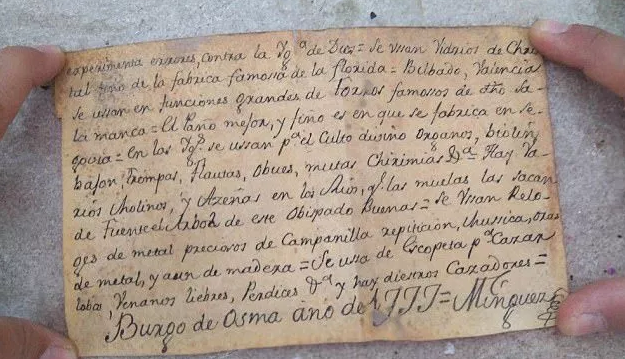 experimenta errores, contra la Yg.ª de Dios = Se Vsan Vidrios de Chris
tal fino de la fabrica famossa de la florida = Bilbado, Valencia
se ussan en funciones grandes de toros famosos de dho Sa-
lamanca = El Paño mejor, y fino es en que se fabrica en Se-
govia = en las Ygs. se ussan p.ª el Culto divino Organos, biolin
bajon, trompas, flautas, Obues, Chirimias &ª = Hay Va-
rios Molinos, y Azeñas en los Rios, y las muelas las sacan
de Fuente el Arbol de este Obispado Buenas = se Vssan Relo-
ges de metal preciosos de Campanilla repiticion, Mussica, Otros
de metal, y aun de madera = Se ussa de Escopeta p.ª Cazar
lobos, Venaos liebres, Perdices &ª y hay diestros Cazadores =
Burgo de Osma año de 1777 = Minguez